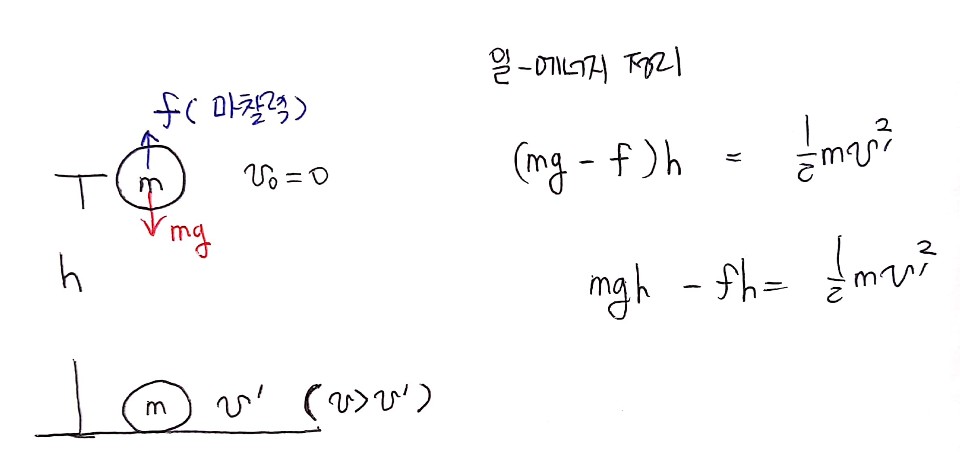 일-에너지 정리
f( 마찰력)
(mg - f)h = 1/2 mv'²
m
v₀ = 0
mg
h
mgh - fh = 1/2 mv'²
m v' (v>v')